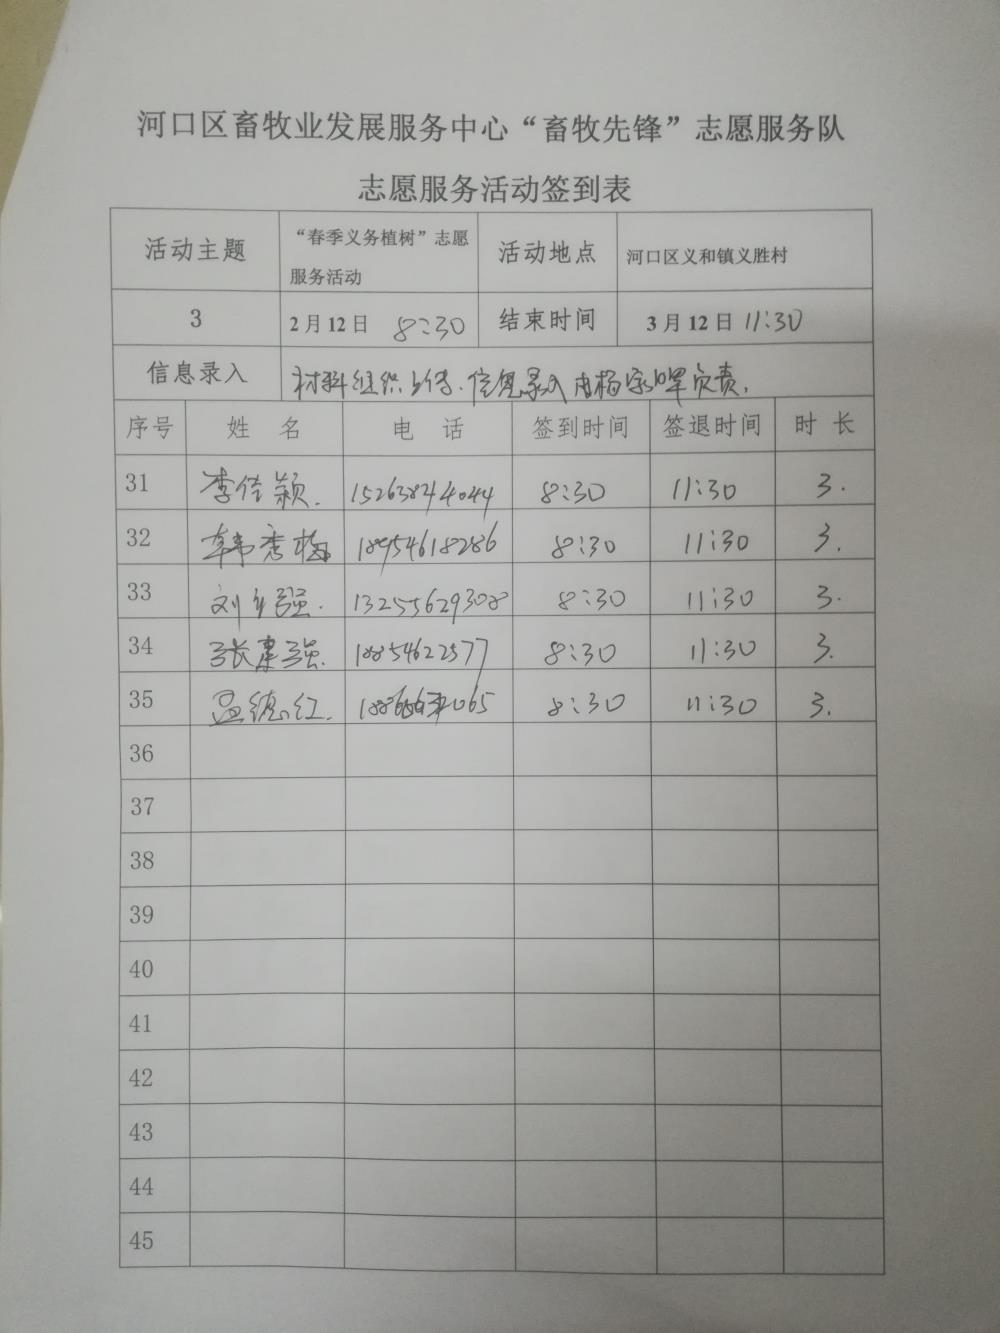 河口区畜牧业发展服务中心“畜牧先锋”志愿服务队
志愿服务活动签到表
活动主题 “春季义务植树”志愿服务活动 活动地点 河口区义和镇义胜村
3 2月12日 8:30 结束时间 3月12日 11:30
信息录入 材料组织上传、信息录入由杨家晖负责.
序号 姓 名 电 话 签到时间 签退时间 时 长
31 李佳颖. 15263844044 8:30 11:30 3.
32 韩秀梅 18954618286 8:30 11:30 3.
33 刘 强. 13255629308 8:30 11:30 3.
34 张建强 18854622577 8:30 11:30 3.
35 孟德红. 8:30 11:30 3.
36
37
38
39
40
41
42
43
44
45